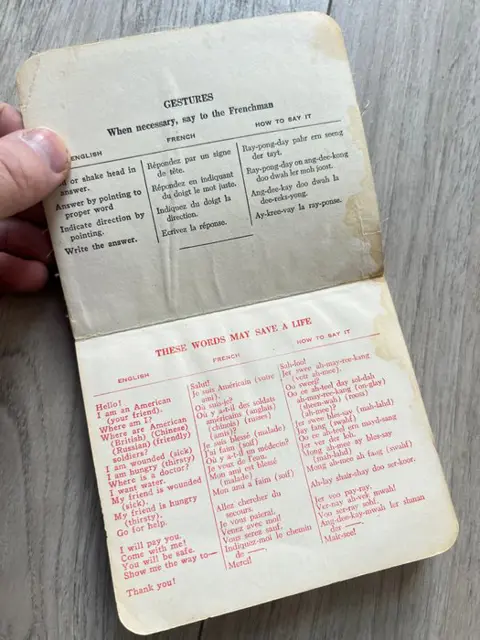 GESTURES
When necessary, say to the Frenchman
ENGLISH
or shake head in
answer.
Answer by pointing to
proper word
Indicate direction by
pointing.
Write the answer.
FRENCH
Répondez par un signe
de tête.
Répondez en indiquant
du doigt le mot juste.
Indiquez du doigt la
direction.
Ecrivez la réponse.
HOW TO SAY IT
Ray-pong-day pahr ern seeng
der tayt.
Ray-pong-day on ang-dee-kong
doo dwah ler moh joost.
Ang-dee-kay doo dwah la
dee-reks-yong.
Ay-kree-vay la ray-ponse.
THESE WORDS MAY SAVE A LIFE
ENGLISH
Hello!
I am an American
(your friend).
Where am I?
Where are American
(British) (Chinese)
(Russian) (friendly)
soldiers?
I am wounded (sick)
I am hungry (thirsty)
Where is a doctor?
I want water.
My friend is wounded
(sick).
My friend is hungry
(thirsty).
Go for help.
I will pay you.
Come with me!
You will be safe.
Show me the way to—
Thank you!
FRENCH
Salut!
Je suis Américain (votre
ami).
Où suis-je?
Où y a-t-il des soldats
américains (anglais)
(chinois) (russes)
(amis)?
Je suis blessé (malade)
J'ai faim (soif)
Où y a-t-il un médecin?
Je veux de l'eau.
Mon ami est blessé
(malade)
Mon ami a faim (soif)
Allez chercher du
secours.
Je vous paierai.
Venez avec moi!
Vous serez sauf.
Indiquez-moi le chemin
de —.
Merci!
HOW TO SAY IT
Sah-loo!
Jer swee ah-may-ree-kang
(votr ah-mee).
Oo sweej?
Oo ee ah-teel day sol-dah
ah-may-ree-kang (on-glay)
(sheen-wah) (roos)
(ah-mee)?
Jer swee bles-say (mah-lahd)
Jay fang (swahf)
Oo ee ah-teel ern mayd-sang
Jer ver der loh.
Mong ah-mee ay bles-say
(mah-lahd)
Mong ah-mee ah fang (swahf)
Ah-lay shair-shay doo ser-koor.
Jer voo pay-ray.
Ver-nay ah-vek mwah!
Voo ser-ray sohf.
Ang-dee-kay-mwah ler shman
der —.
Mair-see!